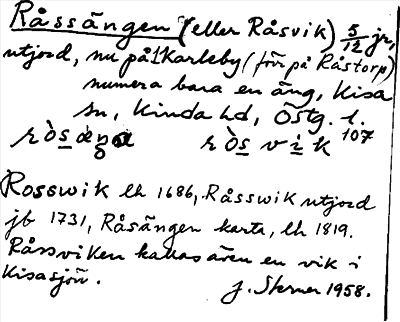 Råssängen (eller Råsvik) 5/12 jr,
utjord, nu på 1 Karleby (förr på Råstorp)
numera bara en äng, Kisa
sn, Kinda hd, Östg. l.
107
rò̀s vik
Rosswik lh 1686, Råsswik utjord
jb 1731, Råsängen karta, lh 1819.
Råssviken kallas även en vik i
Kisasjön.
J. Sterner 1958.